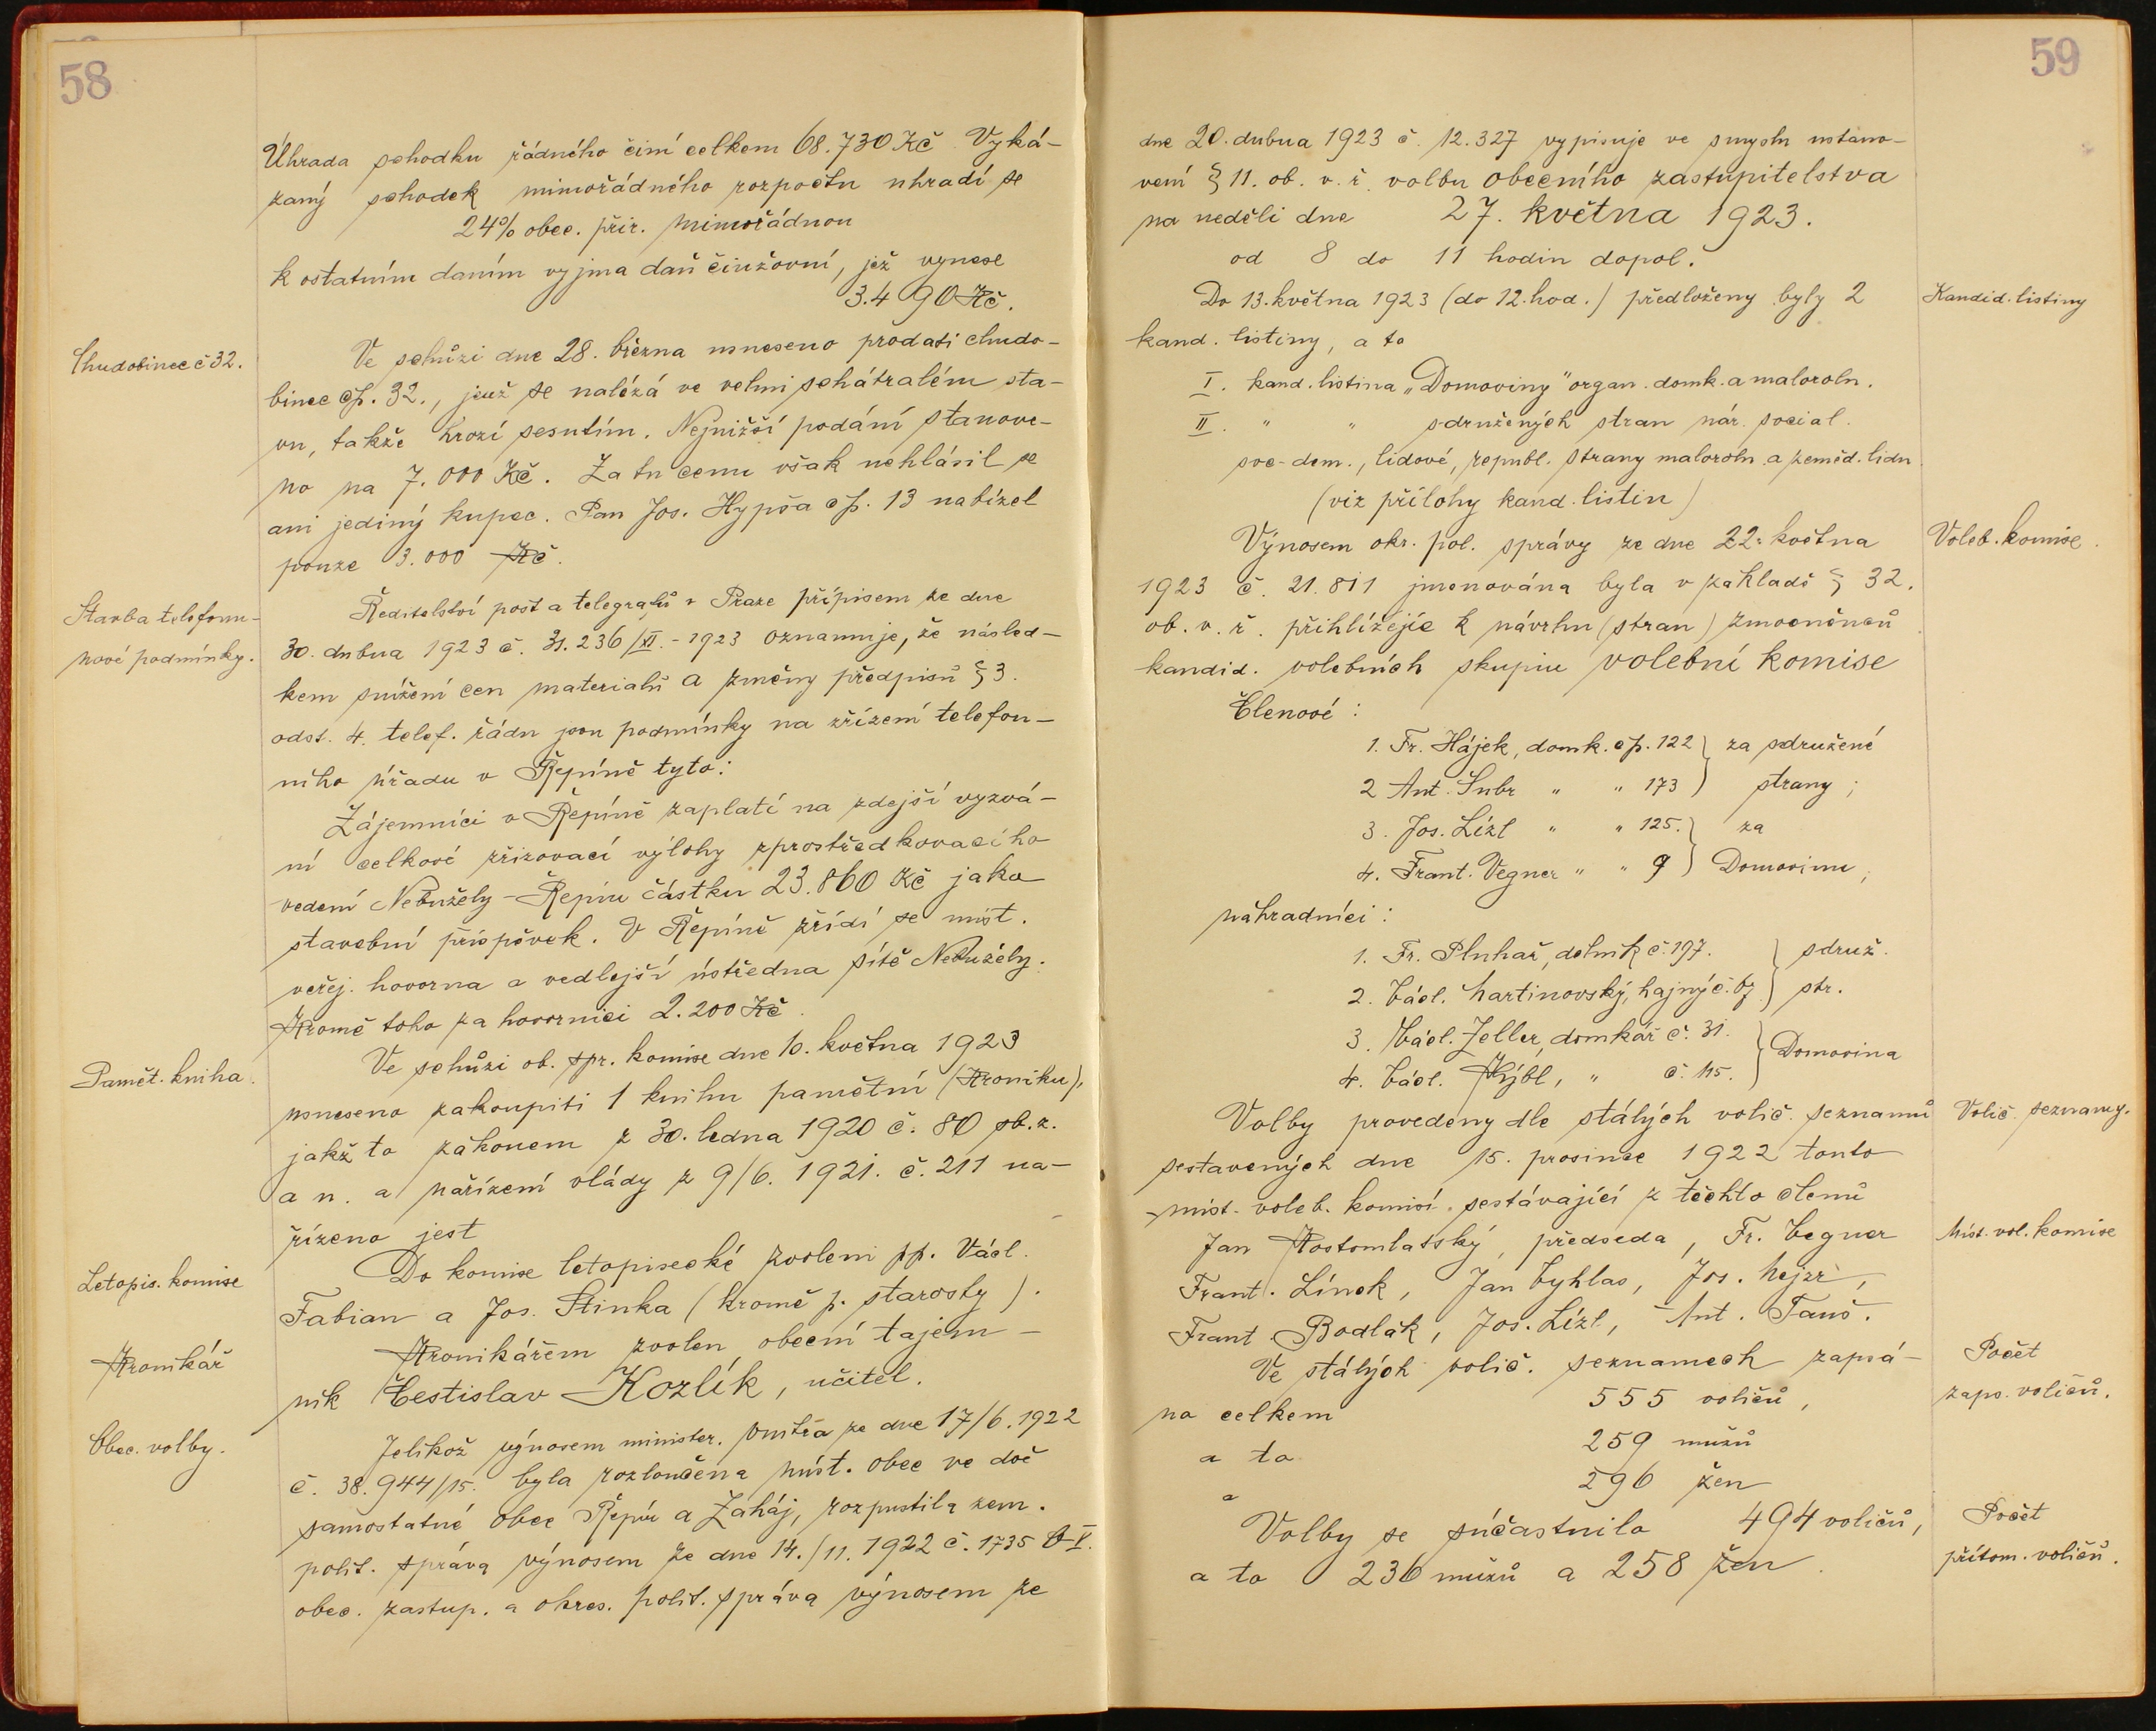 58
Úhrada schodku řádného činí celkem 68.730 Kč. Vyká-
zaný schodek mimořádného rozpočtu uhradí se
24% obec. přir. mimořádnou
k ostatním daním vyjma daň činžovní, jež vynese
3.490 Kč.
Chudobinec č 32.
Ve schůzi dne 28. března usneseno prodati chudo-
binec čp. 32., jenž se nalézá ve velmi schátralém sta-
vu, takže hrozí sesutím. Nejnižší podání stanove-
no na 7.000 Kč. Za tu cenu však nehlásil se
ani jediný kupec. Pan Jos. Hypša čp. 13 nabízel
pouze 3.000 Kč.
Stavba telefonu-
nové podmínky.
Ředitelství pošt a telegrafů v Praze přípisem ze dne
30. dubna 1923 č. 31.236/XI.-1923 oznamuje, že násled-
kem snížení cen materialů a změny předpisů § 3.
odst. 4. telef. řádu jsou podmínky na zřízení telefon-
ního úřadu v Řepíně tyto:
Zájemníci v Řepíně zaplatí na zdejší vyzvá-
ní celkové zřizovací výlohy zprostředkovacího
vedení Nebužely-Řepín částku 23.860 Kč jako
stavební příspěvek. V Řepíně zřídí se míst.
veřej. hovorna a vedlejší ústředna sítě Nebužely.
Kromě toho za hovornici 2.200 Kč.
Pamět. kniha.
Ve schůzi ob. spr. komise dne 10. května 1923
usneseno zakoupiti 1 knihu pamětní (Kroniku),
jakž to zákonem z 30. ledna 1920 č. 80 sb. z.
a n. a nařízení vlády z 9/6. 1921. č. 211 na-
řízeno jest
Letopis. komise
Do komise letopisecké zvoleni pp. Václ.
Fabian a Jos. Stinka (kromě p. starosty).
Kronikář
Kronikářem zvolen obecní tajem-
ník Čestislav Kozlík, učitel.
Obec. volby.
Jelikož výnosem minister. vnitra ze dne 17/6. 1922
č. 38.944/15. byla rozloučena míst. obec ve dvě
samostatné obce Řepín a Zaháj, rozpustila zem.
polit. správa výnosem ze dne 14./11. 1922 č. 1735
obec. zastup. a okres. polit. správa výnosem ze
59
dne 20. dubna 1923 č. 12.327 vypisuje ve smyslu ustano-
vení § 11. ob. v. ř. volbu obecního zastupitelstva
na neděli dne 27. května 1923.
od 8 do 11 hodin dopol.
Kandid. listiny
Do 13. května 1923 (do 12. hod.) předloženy byly 2
kand. listiny, a to
I. kand. listina „Domoviny" organ. domk. a maloroln.
II. " " sdružených stran nár. social.
soc-dem., lidové, republ. strany maloroln. a zeměd. lidu
(viz přílohy kand. listin)
Voleb. komise.
Výnosem okr. pol. správy ze dne 22. května
1923 č. 21.811 jmenována byla v základě § 32.
ob. v. ř. přihlížejíc k návrhu (stran) zmocněnců
kandid. volebních skupin volební komise
Členové:
1. Fr. Hájek, domk. čp. 122 } za sdružené
2 Ant. Šubr " " 173 } strany;
3. Jos. Lízl " " 125. } za
4. Frant. Vegner " " 9 } Domovinu;
náhradníci:
1. Fr. Pluhař, dělník č. 197. } sdruž.
2. Václ. Martinovský, hajný č. 67 } str.
3. Václ. Zeller, domkář č. 31. } Domovina
4. Václ. Kýbl, " č. 115.
Volič. seznamy.
Volby provedeny dle stálých volič. seznamů
sestavených dne 15. prosince 1922 touto
míst. voleb. komisí, sestávající z těchto členů
Míst. vol. komise
Jan Kostomlatský, předseda, Fr. Vegner
Frant. Línek, Jan Vyhlas, Jos. Mejzr,
Frant. Bodlák, Jos. Lízl, Ant. Tauš.
Počet
zaps. voličů.
Ve stálých volič. seznamech zapsá-
no celkem 555 voličů,
a to 259 mužů
a 296 žen
Počet
přítom. voličů.
Volby se súčastnilo 494 voličů,
a to 236 mužů a 258 žen.